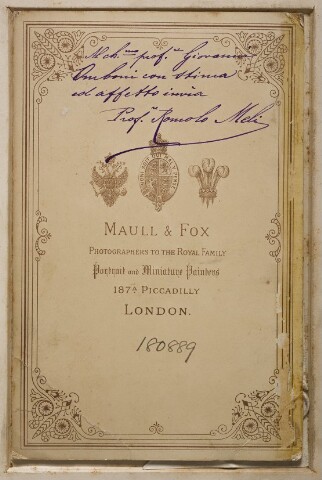 Al ch.mo prof.r Giovanni
Omboni con stima
ed affetto invia
Prof.r Romolo Meli
MAULL & FOX
PHOTOGRAPHERS TO THE ROYAL FAMILY
Portrait and Miniature Painters
187A PICCADILLY
LONDON.
180889